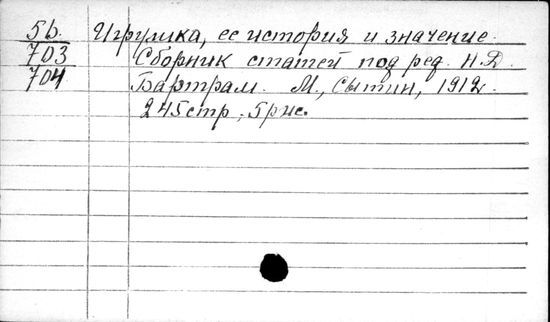 5б. Игрушка, ее история и значение.
703 Сборник статей под ред. Н.Д.
704 Бартрам. М., Сытин, 1912.
245 стр., 5 рис.